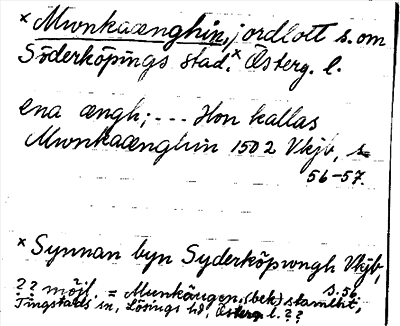 × Munkaænghin, jordlott s. om
Söderköpings stad.× Österg. l.
ena ængh; --- Hon kallas
Munkaænghin 1502 Vkjb, s
56-57.
× Synnan byn Syderköpungh Vkjb,
s. 56
?? möjl. = Munkängen (bek) stamlht,
Tingstads sn, Lösings hd, Österg. l. ??